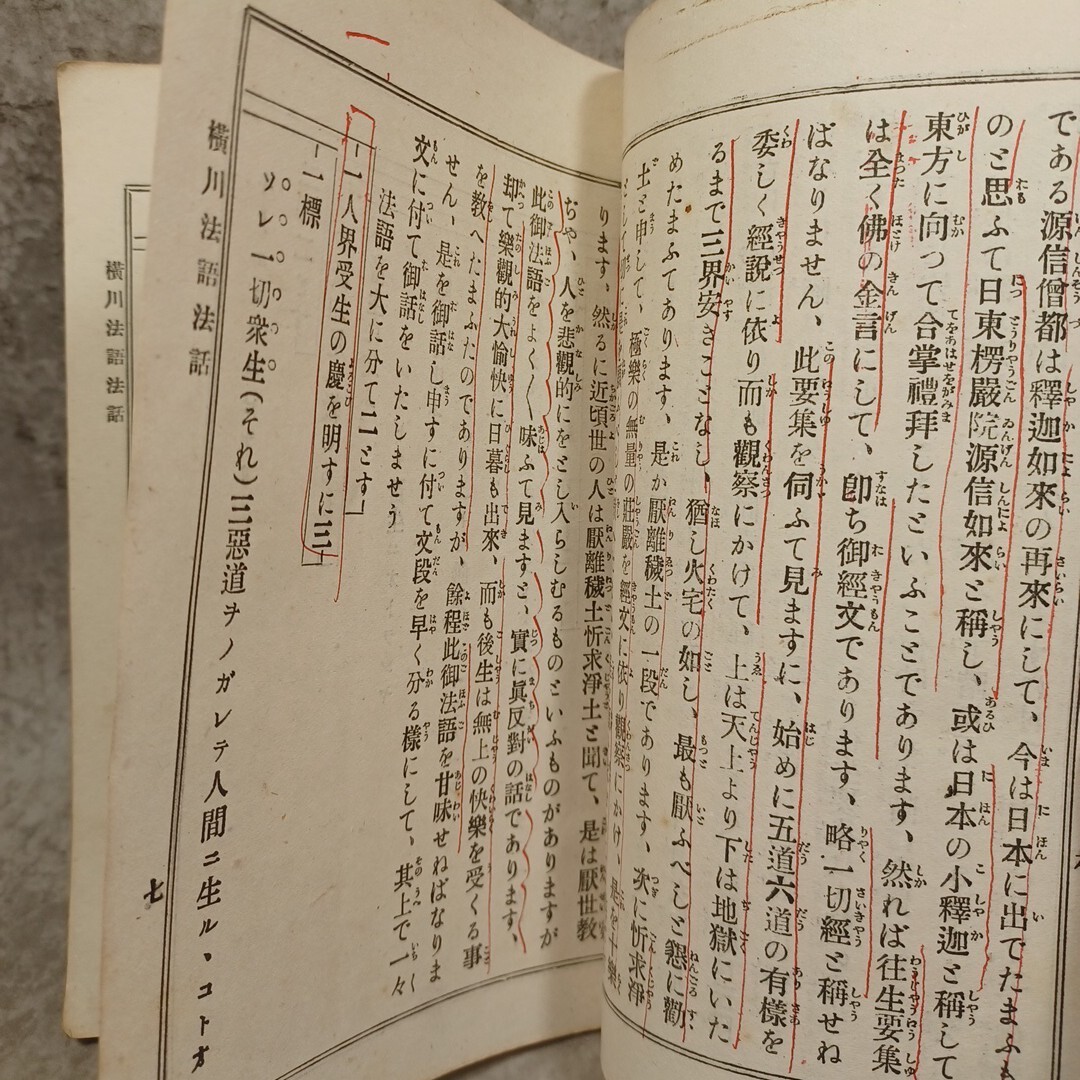 である源信僧都は釋迦如來の再來にして、今は日本に出でたまふ
のと思ふて日東楞嚴院源信如來と稱し、或は日本の小釋迦と稱して
東方に向つて合掌禮拜したといふことであります、然れば往生要集
は全く佛の金言にして、卽ち御經文であります、略一切經と稱せね
ばなりません、此要集を伺ふて見ますに、始めに五道六道の有樣を
委しく經說に依り而も觀察にかけて、上は天上より下は地獄にいた
るまで三界安きことなし、猶し火宅の如し、最も厭ふべしと懇に勸
めたまふてあります、是か厭離穢土の一段であります、次に忻求淨
土と申して、極樂の無量の莊嚴を經文に依り觀察にかけ、
ります、然るに近頃世の人は厭離穢土忻求淨土と聞て、是は厭世教
ぢや、人を悲觀的にをとし入らしむるものといふものがありますが
此御法語をよく〱味ふて見ますと、實に眞反對の話であります、
却て樂觀的大愉快に日暮も出來、而も後生は無上の快樂を受くる事
を敎へたまふたのでありますが、餘程此御法語を甘味せねばなりま
せん、是を御話し申すに付て文段を早く分る樣にして、其上で一々
文に付て御話をいたしませう
法語を大に分て二とす
一人界受生の慶を明すに三
一標
ソレ一切衆生(それ)三惡道ヲノガレテ人間ニ生ル、コトオ
橫川法語法話
七
橫川法語法話